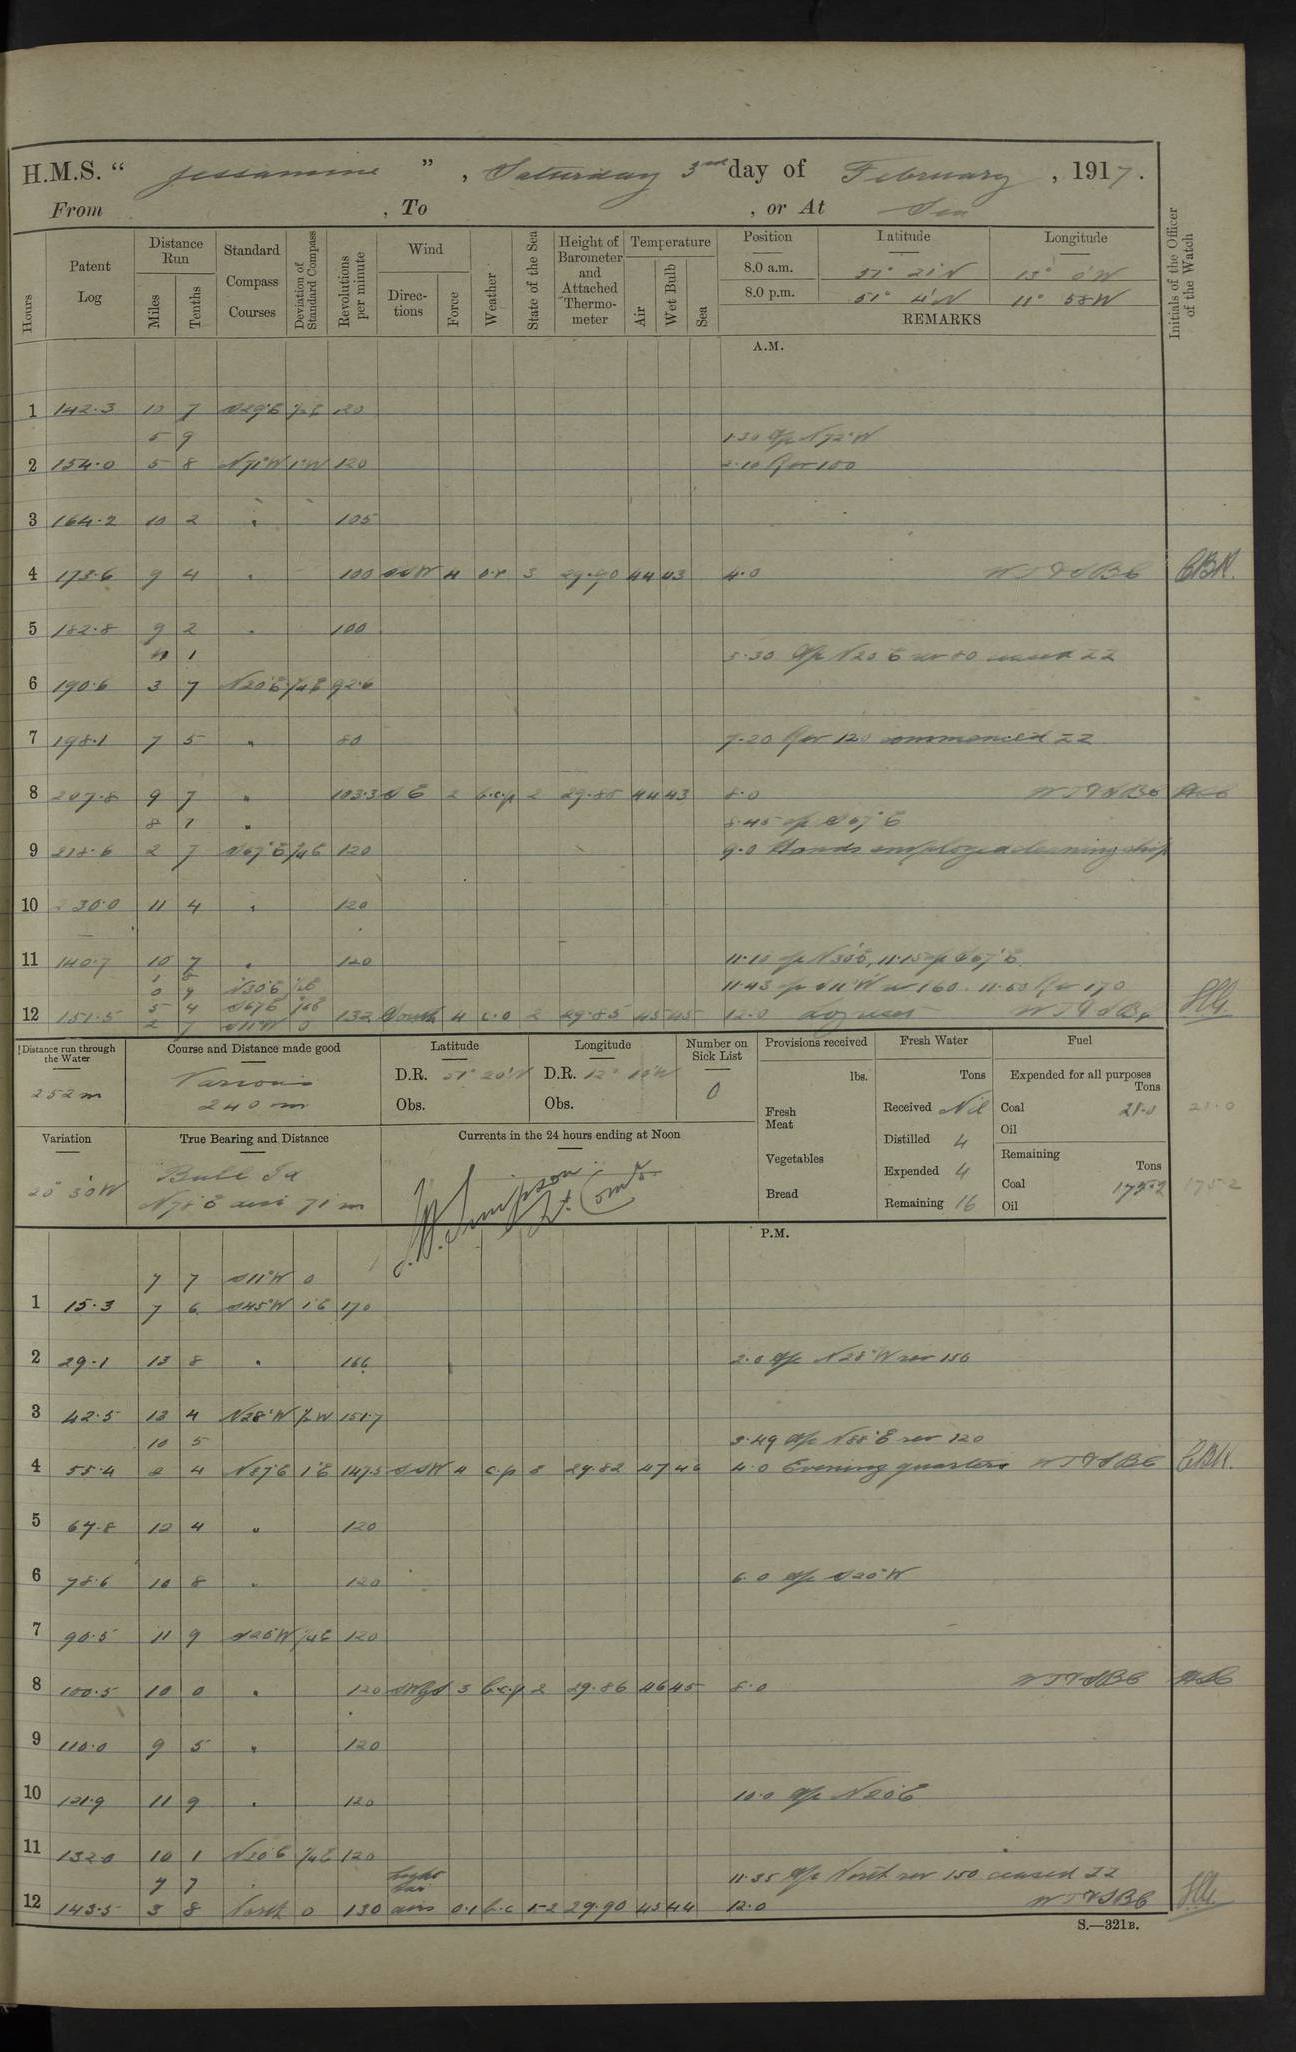 H.M.S. “ Jessamine ” , Saturday 3rd day of February , 1917.
From , To , or At Sea
Hours
Patent Log
Distance Run
Miles
Tenths
Standard Compass Courses
Deviation of Standard Compass
Revolutions per minute
Wind
Directions
Force
Weather
State of the Sea
Height of Barometer and Attached Thermometer
Temperature
Air
Wet Bulb
Sea
Position Latitude Longitude
8.0 a.m. 51° 21'N 13° 0'W
8.0 p.m. 51° 4'N 11° 58'W
REMARKS
Initials of the Officer of the Watch
A.M.
1 142.3 10 7 S29°E ½E 120
5 9 1.30 a/c N72°W
2 154.0 5 8 N71°W 1°W 120 2.10 Rev 100
3 164.2 10 2 " 105
4 173.6 9 4 " 100 SSW 4 o.r 3 29.90 44 43 4.0 WT&SBE CBR.
5 182.8 9 2 " 100
4 1 5.30 a/c N20°E rev 80 ceased ZZ
6 190.6 3 7 N20°E ¼E 92.6
7 198.1 7 5 " 80 7.20 Rev 120 commenced ZZ
8 207.8 9 7 " 103.3 SE 2 b.c.p 2 29.85 44 43 8.0 WT&SBE
8 1 " 8.45 a/c S67°E
9 218.6 2 7 S67°E ¾E 120 9.0 Hands employed cleaning ship
10 230.0 11 4 " 120
11 140.7 10 7 " 120 11.10 a/c N30°E, 11.15 a/c S67°E
1 8
0 9 N30°E ½E 11.43 a/c S11°W rev 160. 11.50 Rev 170
5 4 S67°E ¾E
12 151.5 2 7 S11°W 0 132 South 4 c.o 2 29.85 45 45 12.0 WT&SBE
Distance run through the Water
252 m
Course and Distance made good
Various
240 m
Latitude
D.R. 51° 20'N
Obs.
Longitude
D.R. 12° 10'W
Obs.
Number on Sick List
0
Variation
20° 30'W
True Bearing and Distance
Bull Id
N78°E dist 71 m
Currents in the 24 hours ending at Noon
Simpson
Lt. Comdr
Provisions received
lbs.
Fresh Meat
Vegetables
Bread
Fresh Water
Tons
Received Nil
Distilled 4
Expended 4
Remaining 16
Fuel
Expended for all purposes
Tons
Coal 21.0 21.0
Oil
Remaining
Tons
Coal 175.2 175.2
Oil
P.M.
7 7 S11°W 0
1 15.3 7 6 S45°W 1°E 170
2 29.1 13 8 " 166 2.0 a/c N28°W rev 150
3 42.5 13 4 N28°W ½W 151.7
10 5 3.49 a/c N88°E rev 120
4 55.4 2 4 N87°E 1°E 147.5 SSW 4 c.p 3 29.82 47 46 4.0 Evening quarters WT&SBE CBR.
5 67.8 12 4 " 120
6 78.6 10 8 " 120 6.0 a/c S20°W
7 90.5 11 9 S20°W ¼E 120
8 100.5 10 0 " 120 SWbyS 3 b.c.p 2 29.86 46 45 8.0 WT&SBE
9 110.0 9 5 " 120
10 121.9 11 9 " 120 10.0 a/c N20°E
11 132.0 10 1 N20°E ¼E 120
7 7 " Light 11.35 a/c North rev 150 ceased ZZ
12 143.5 3 8 North 0 130 airs 0.1 b.c 1-2 29.90 45 44 12.0 WT&SBE
S.—321B.